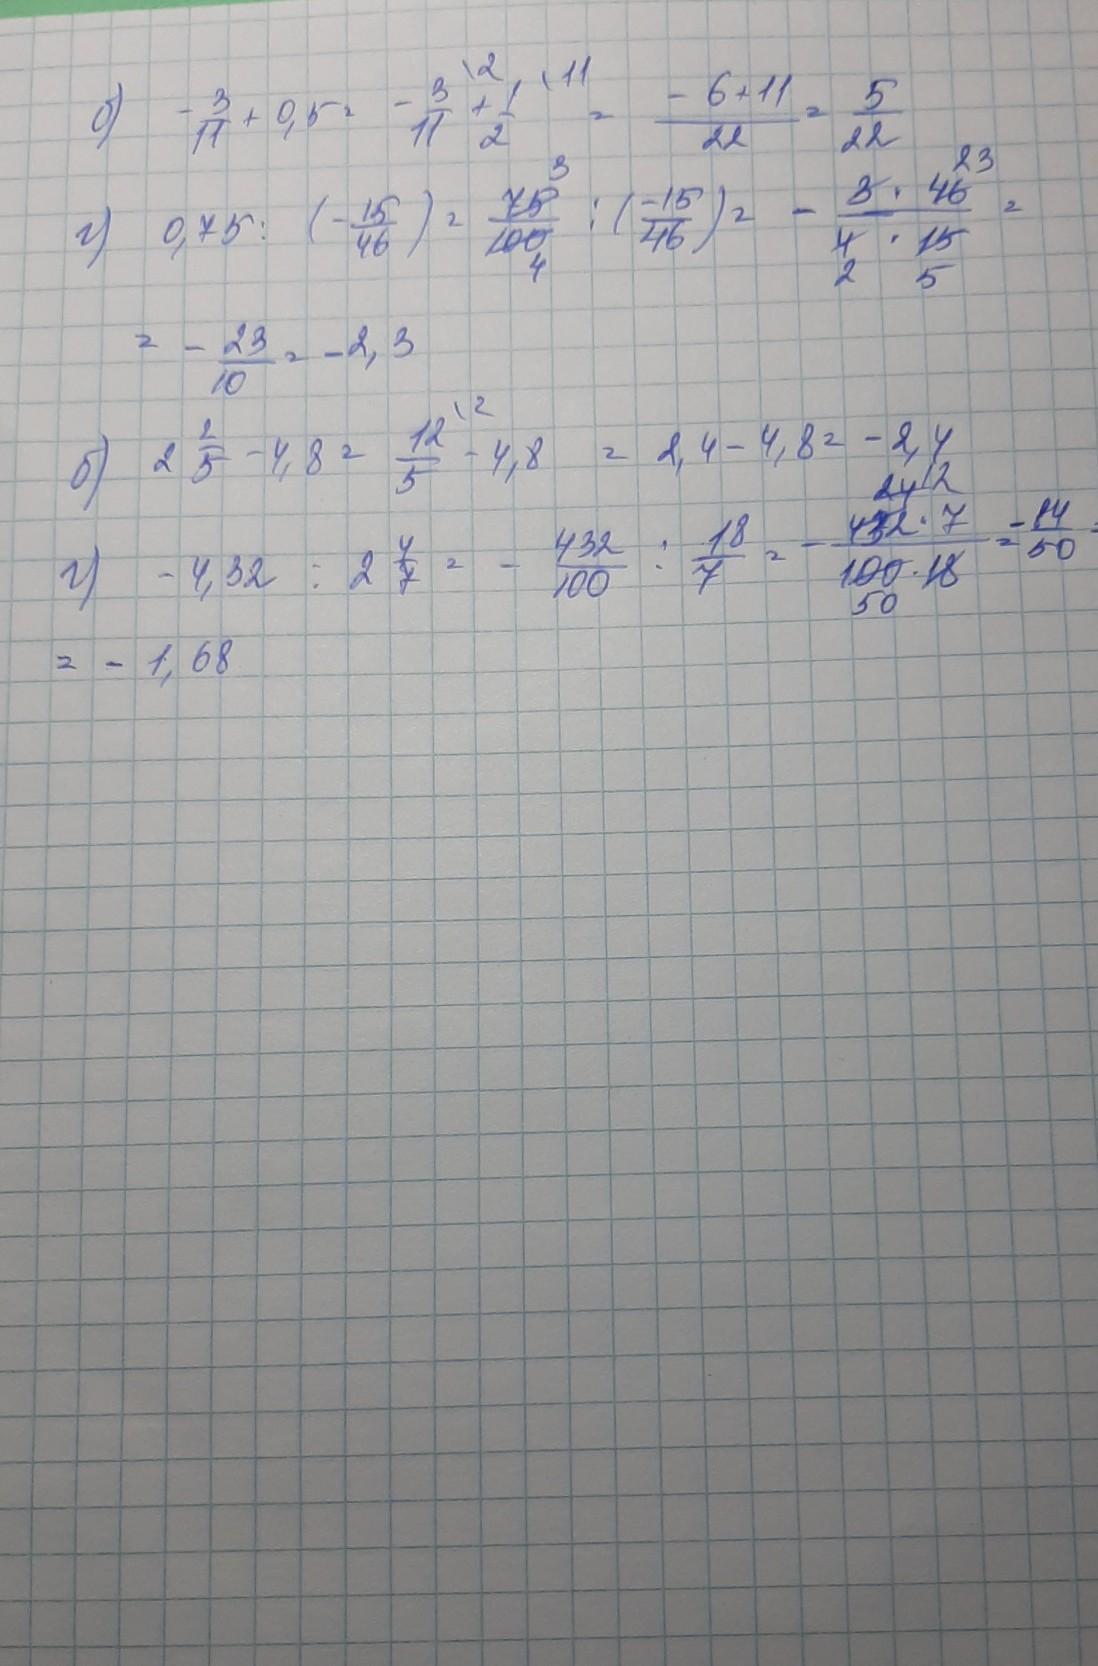 б) -3/11 + 0,5 = -3/11 \2 + 1/2 \11 = (-6+11)/22 = 5/22
г) 0,75 : (-15/46) = 75 3/100 4 : (-15/46) = - (3 · 46 23)/(4 2 · 15 5) =
= - 23/10 = -2,3
б) 2 2/5 - 4,8 = 12/5 \2 - 4,8 = 2,4 - 4,8 = -2,4
г) -4,32 : 2 4/7 = - 432/100 : 18/7 = - (432 · 7)/(100 50 · 18) = -14/50 =
= - 1,68